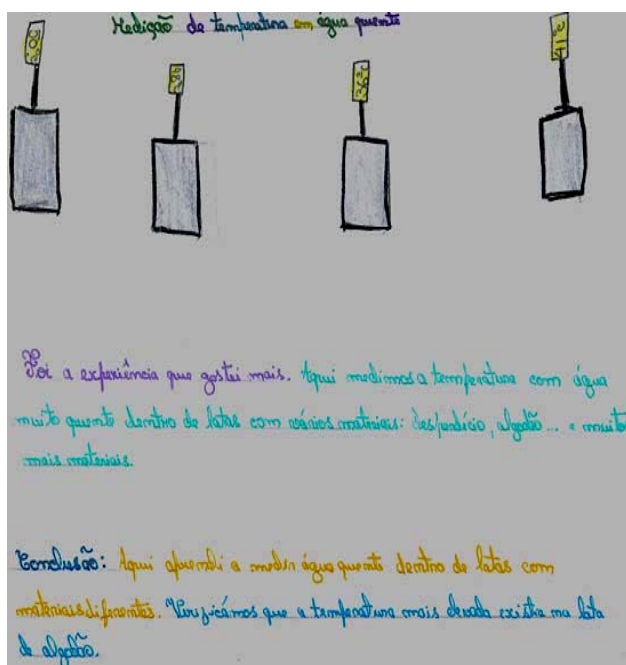 Medição de temperatura em água quente
36°C
41°C
Foi a experiência que gostei mais. Aqui medimos a temperatura com água
muito quente dentro de latas com vários materiais: desperdício, algodão... e muito
mais materiais.
Conclusão: Aqui aprendi a medir água quente dentro de latas com
materiais diferentes. Verificámos que a temperatura mais elevada existia na lata
de algodão.